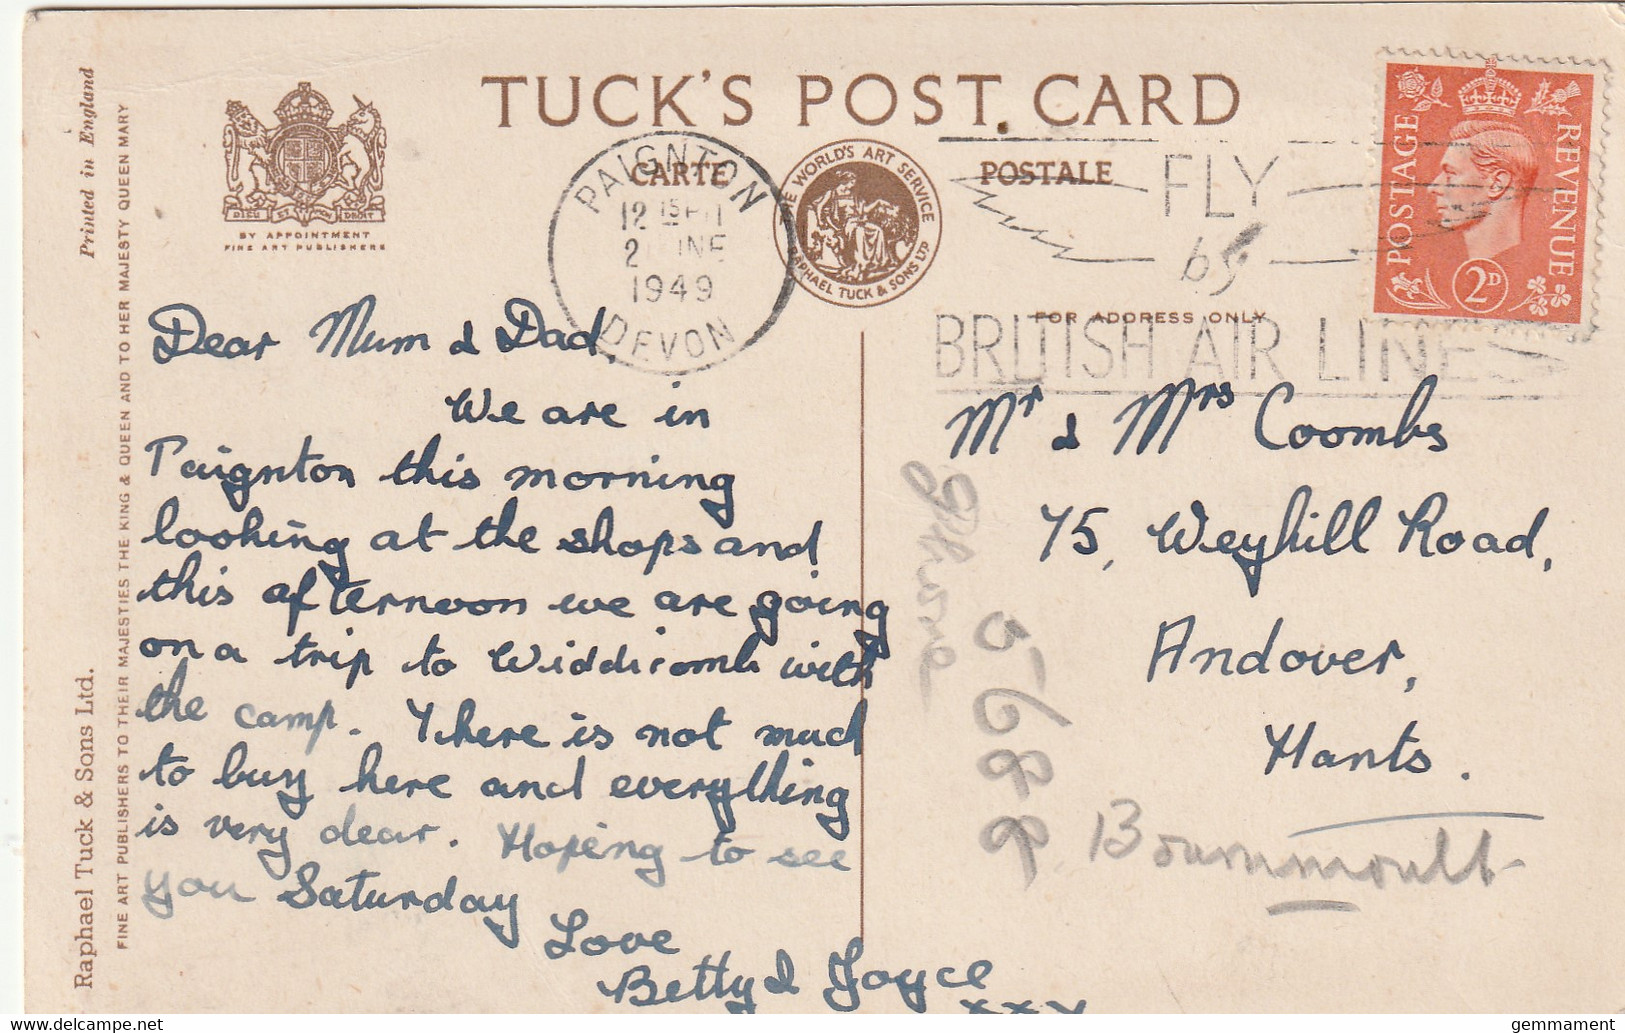 TUCK'S POST CARD
CARTE POSTALE
BY APPOINTMENT
FINE ART PUBLISHERS
DIEU ET MON DROIT
THE WORLD'S ART SERVICE
RAPHAEL TUCK & SONS LTD
FOR ADDRESS ONLY
Printed in England
FINE ART PUBLISHERS TO THEIR MAJESTIES THE KING & QUEEN AND TO HER MAJESTY QUEEN MARY
Raphael Tuck & Sons Ltd.
PAIGNTON
12 15 PM
2 NE
1949
DEVON
FLY
by
BRITISH AIR LINES
POSTAGE
REVENUE
2D
Dear Mum & Dad,
We are in
Paignton this morning
looking at the shops and
this afternoon we are going
on a trip to Widdicomb with
the camp. There is not much
to buy here and everything
is very dear. Hoping to see
you Saturday
Love
Betty & Joyce
xxxx
Mr & Mrs Coombs
75, Weyhill Road,
Andover,
Hants.
Phone
5688
Bournmoult
gemmament